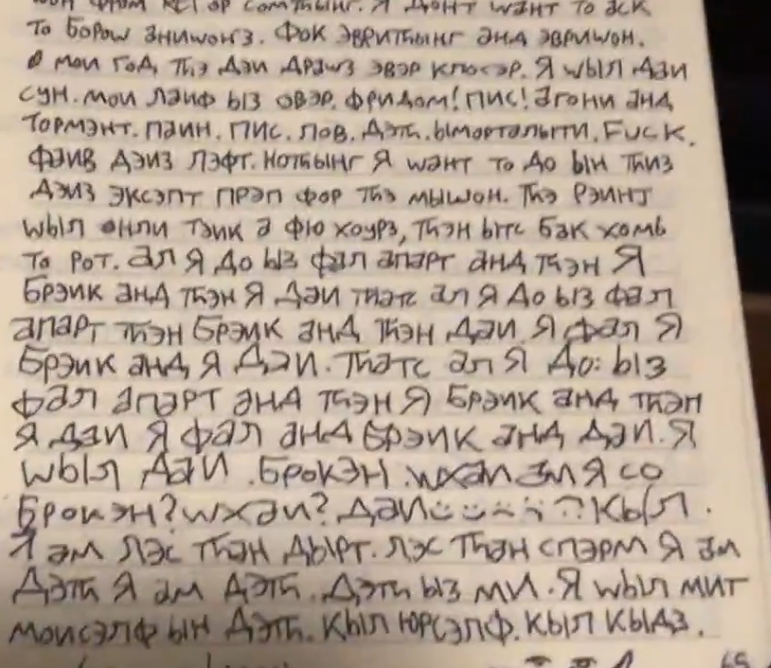 то сомтһынг. Я донт wант то аск
то бороw анишонгз. Фок эвритһынг анд эвриwон.
О мои год, тһэ дэи драwз эвэр клосэр. Я wыл дaи
сун. мои лаиф ыз овэр. фридом! пис! агони анд
тормэнт. паин. пис. лов. дэтһ. ыморталыти. Fuck.
фаив дэиз лэфт. нотһынг Я wант то до ын тһиз
дэиз эксэпт прэп фор тһэ мышон. тһэ
wыл онли тэик а фю хоурз, тһэн ытс бак хомь
то рот. ал я до ыз фал апарт анд тһэн Я
брэик анд тһэн я даи тһатс ал я до ыз фал
апарт тһэн брэик анд тһэн даи. Я фал Я
брэик анд я даи. тһатс ал я до: ыз
фал апарт анд тһэн Я брэик анд тһэн
Я даи Я фал анд брэик анд даи. Я
wыл даи. брокэн. wхаи ам я со
брокэн? wхаи? даи кыл.
Я ам лэс тһан дырт. лэс тһан спэрм Я ам
дэтһ Я ам дэтһ. дэтһ ыз ми. Я wыл мит
моисэлф ын дэтһ. Кыл юрсэлф. Кыл кыдз.